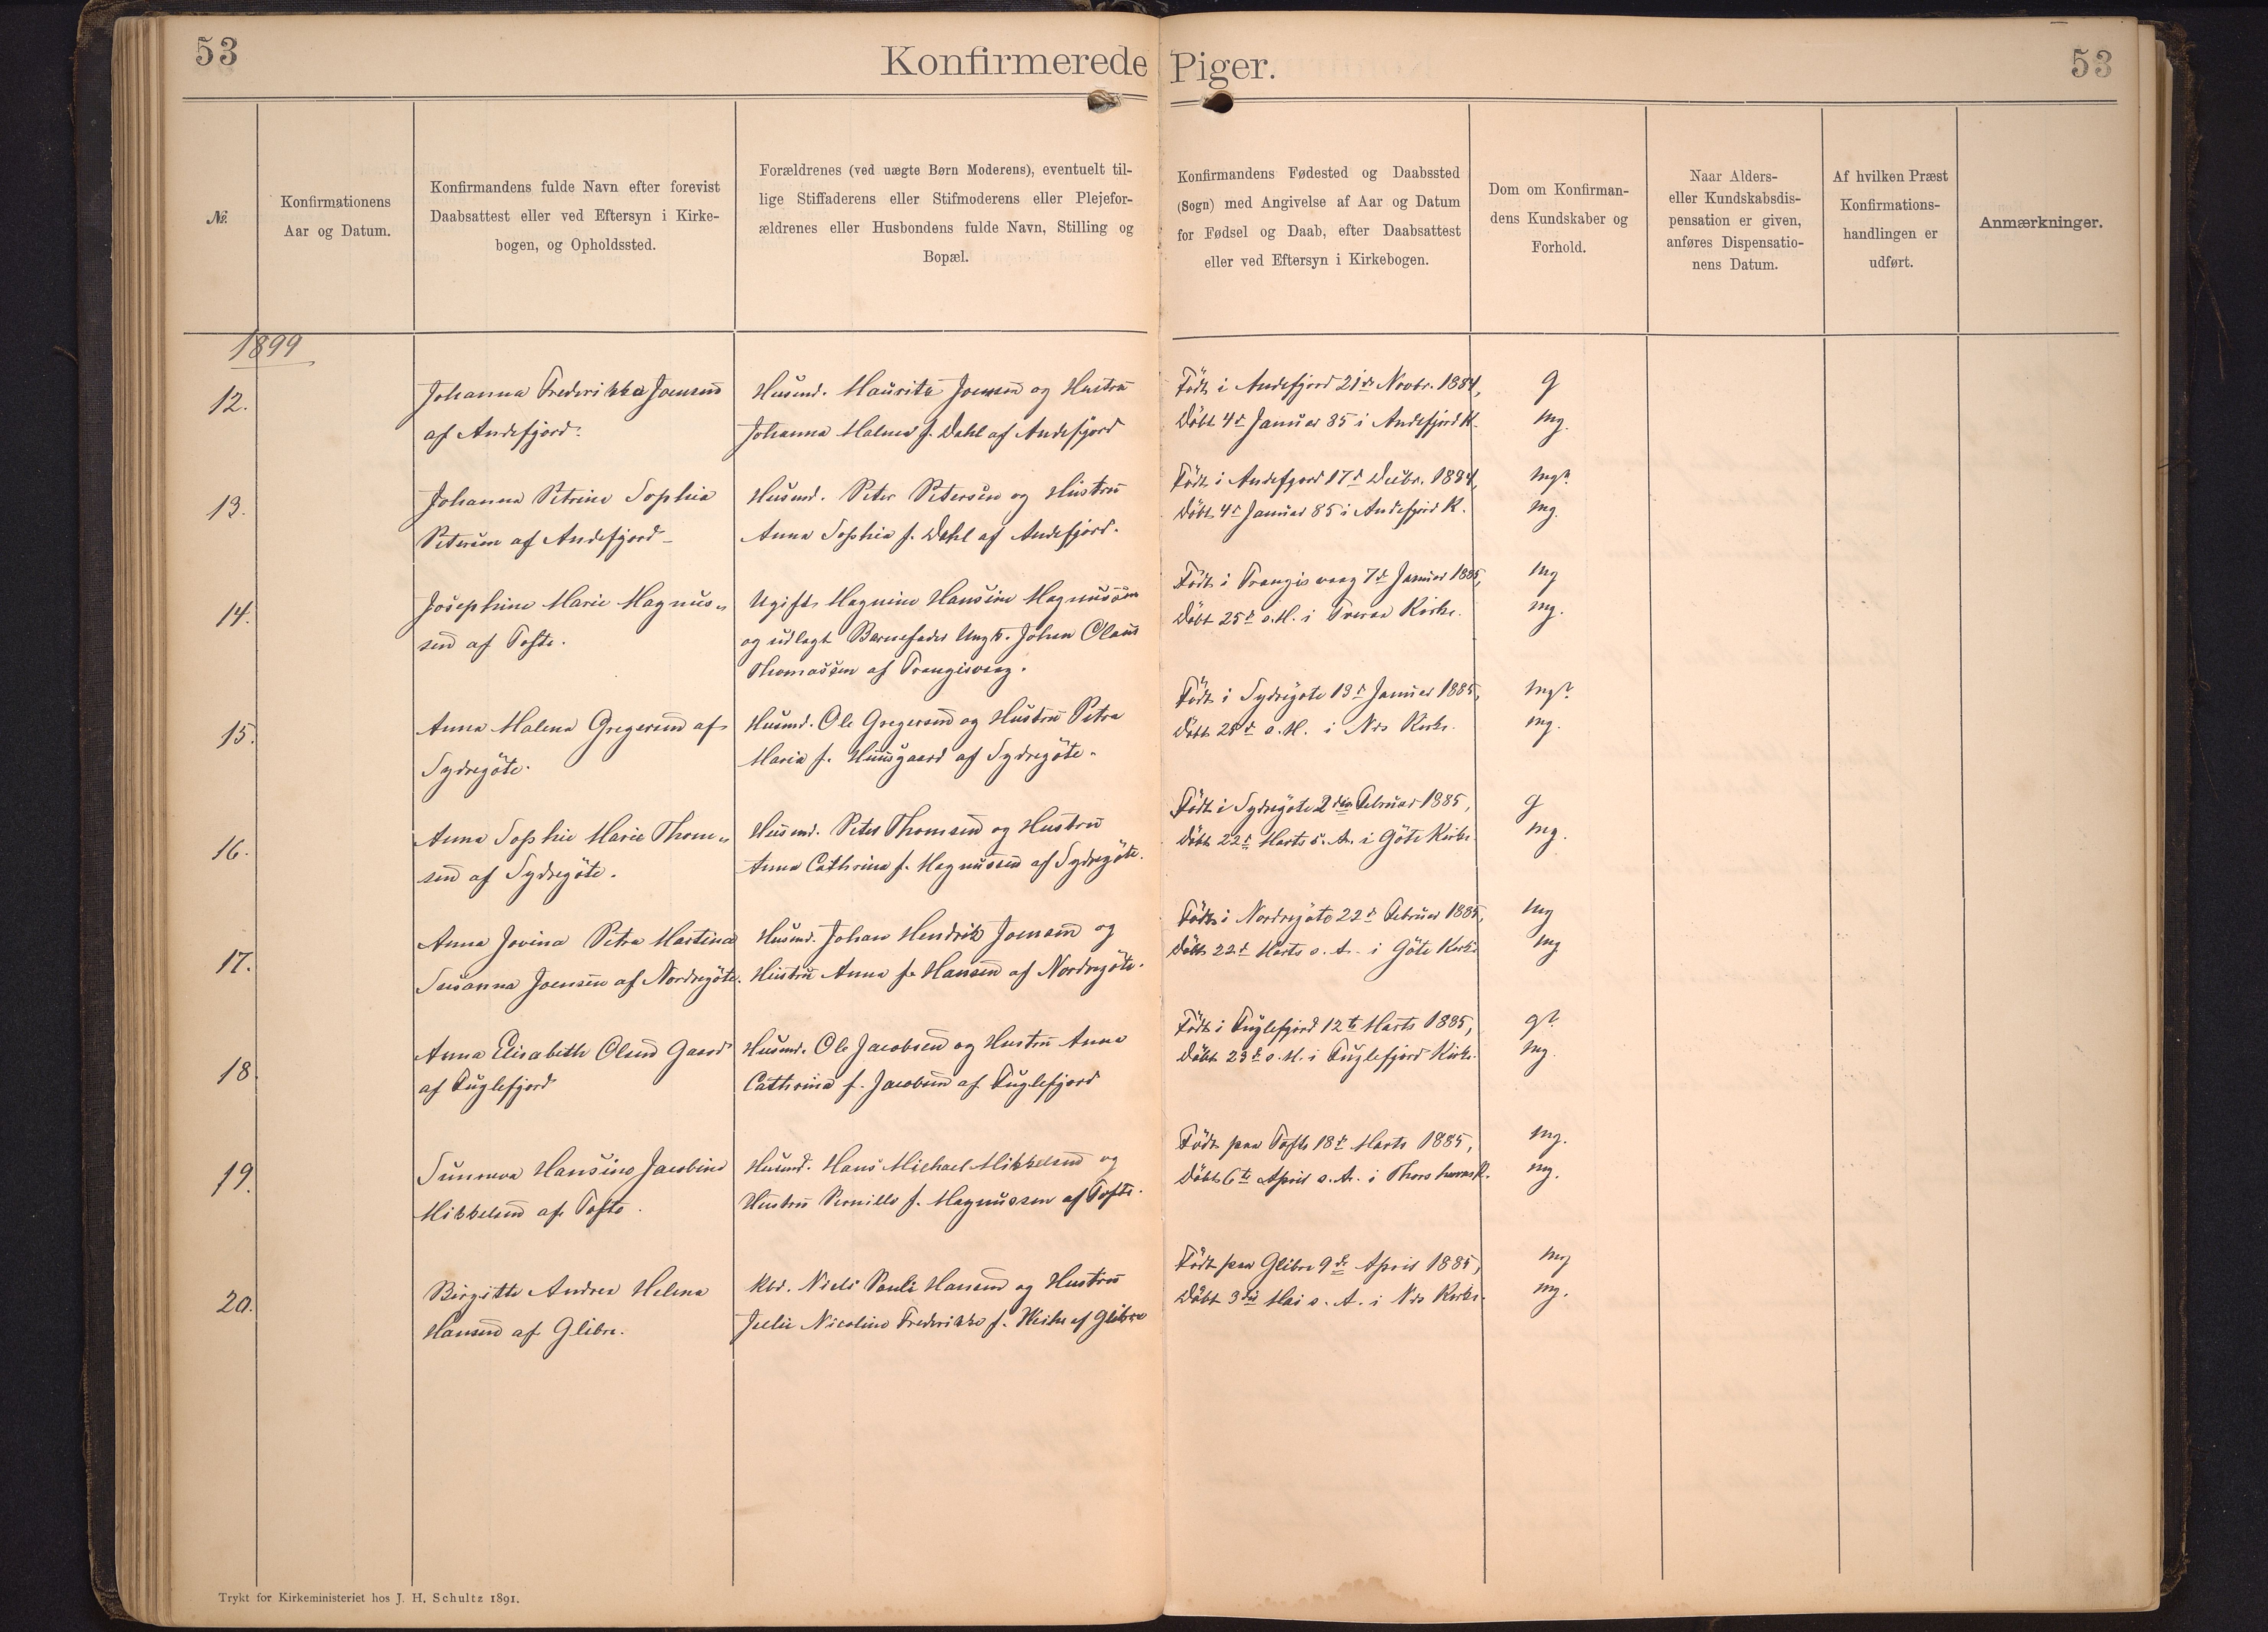 53
Konfirmerede Piger.
53
№.
Konfirmationens
Aar og Datum.
Konfirmandens fulde Navn efter forevist
Daabsattest eller ved Eftersyn i Kirke-
bogen, og Opholdssted.
Forældrenes (ved uægte Børn Moderens), eventuelt til-
lige Stiffaderens eller Stifmoderens eller Plejefor-
ældrenes eller Husbondens fulde Navn, Stilling og
Bopæl.
Konfirmandens Fødested og Daabssted
(Sogn) med Angivelse af Aar og Datum
for Fødsel og Daab, efter Daabsattest
eller ved Eftersyn i Kirkebogen.
Dom om Konfirman-
dens Kundskaber og
Forhold.
Naar Alders-
eller Kundskabsdis-
pensation er given,
anføres Dispensatio-
nens Datum.
Af hvilken Præst
Konfirmations-
handlingen er
udført.
Anmærkninger.
1899
12.
Johanna Frederikka Joensen
af Andefjord.
Husmd. Mauritz Joensen og Hustru
Johanna Malena f. Dahl af Andefjord
Född i Andefjord 21de Novbr. 1884,
Döbt 4de Januar 85 i Andefjord K.
g
mg.
13.
Johanna Petrine Sophia
Petersen af Andefjord
Husmd. Peter Petersen og Hustru
Anna Sophia f. Dahl af Andefjord.
Född i Andefjord 17de Decbr. 1884,
Döbt 4de Januar 85 i Andefjord K.
mg?
mg.
14.
Josephine Marie Magnus-
sen af Tofte.
Ugift Magnine Hansine Magnussen
og udlagt Barnefader Ungk. Johan Olaus
Thomassen af Trangisvaag.
Född i Trangisvaag 7de Januar 1885,
Döbt 25de s. M. i Kirke.
mg
mg.
15.
Anna Malena Gregersen af
Sydregöte.
Husmd. Ole Gregersen og Hustru Petra
Maria f. Huusgaard af Sydregöte.
Född i Sydregöte 13de Januar 1885,
Döbt 25de s. M. i Nes Kirke.
mg?
mg.
16.
Anna Sophie Marie Thom-
sen af Sydregöte.
Husmd. Peter Thomsen og Hustru
Anna Cathrina f. Magnussen af Sydregöte.
Född i Sydregöte 2den Februar 1885,
Döbt 22de Marts s. A. i Göte Kirke
g
mg.
17.
Anna Jovina Petra Martina
Susanna Joensen af Nordregöte.
Husmd. Johan Hendrik Joensen og
Hustru Anna f. Hansen af Nordregöte.
Född i Nordregöte 22de Februar 1885,
Döbt 22de Marts s. A. i Göte Kirke
mg
mg
18.
Anna Elisabeth Olsen Gaard
af Fuglefjord
Husmd. Ole Jacobsen og Hustru Anna
Cathrina f. Jacobsen af Fuglefjord
Född i Fuglefjord 12te Marts 1885,
Döbt 23de s. M. i Fuglefjord Kirke.
g?
mg.
19.
Sunneva Hansine Jacobine
Mikkelsen af Tofte.
Husmd. Hans Michael Mikkelsen og
Hustru Pernille f. Magnussen af Tofte.
Född paa Tofte 18de Marts 1885,
Döbt 6te April s. A. i Thorshavns K.
mg.
mg.
20.
Birgitte Andrea Helena
Hansen af Glibre.
Kbd. Niels Pauli Hansen og Hustru
Julie Nicoline Frederikke f. Weihe af Glibre
Född paa Glibre 9de April 1885,
Döbt 3die Mai s. A. i Nes Kirke.
mg
mg.
Trykt for Kirkeministeriet hos J. H. Schultz 1891.